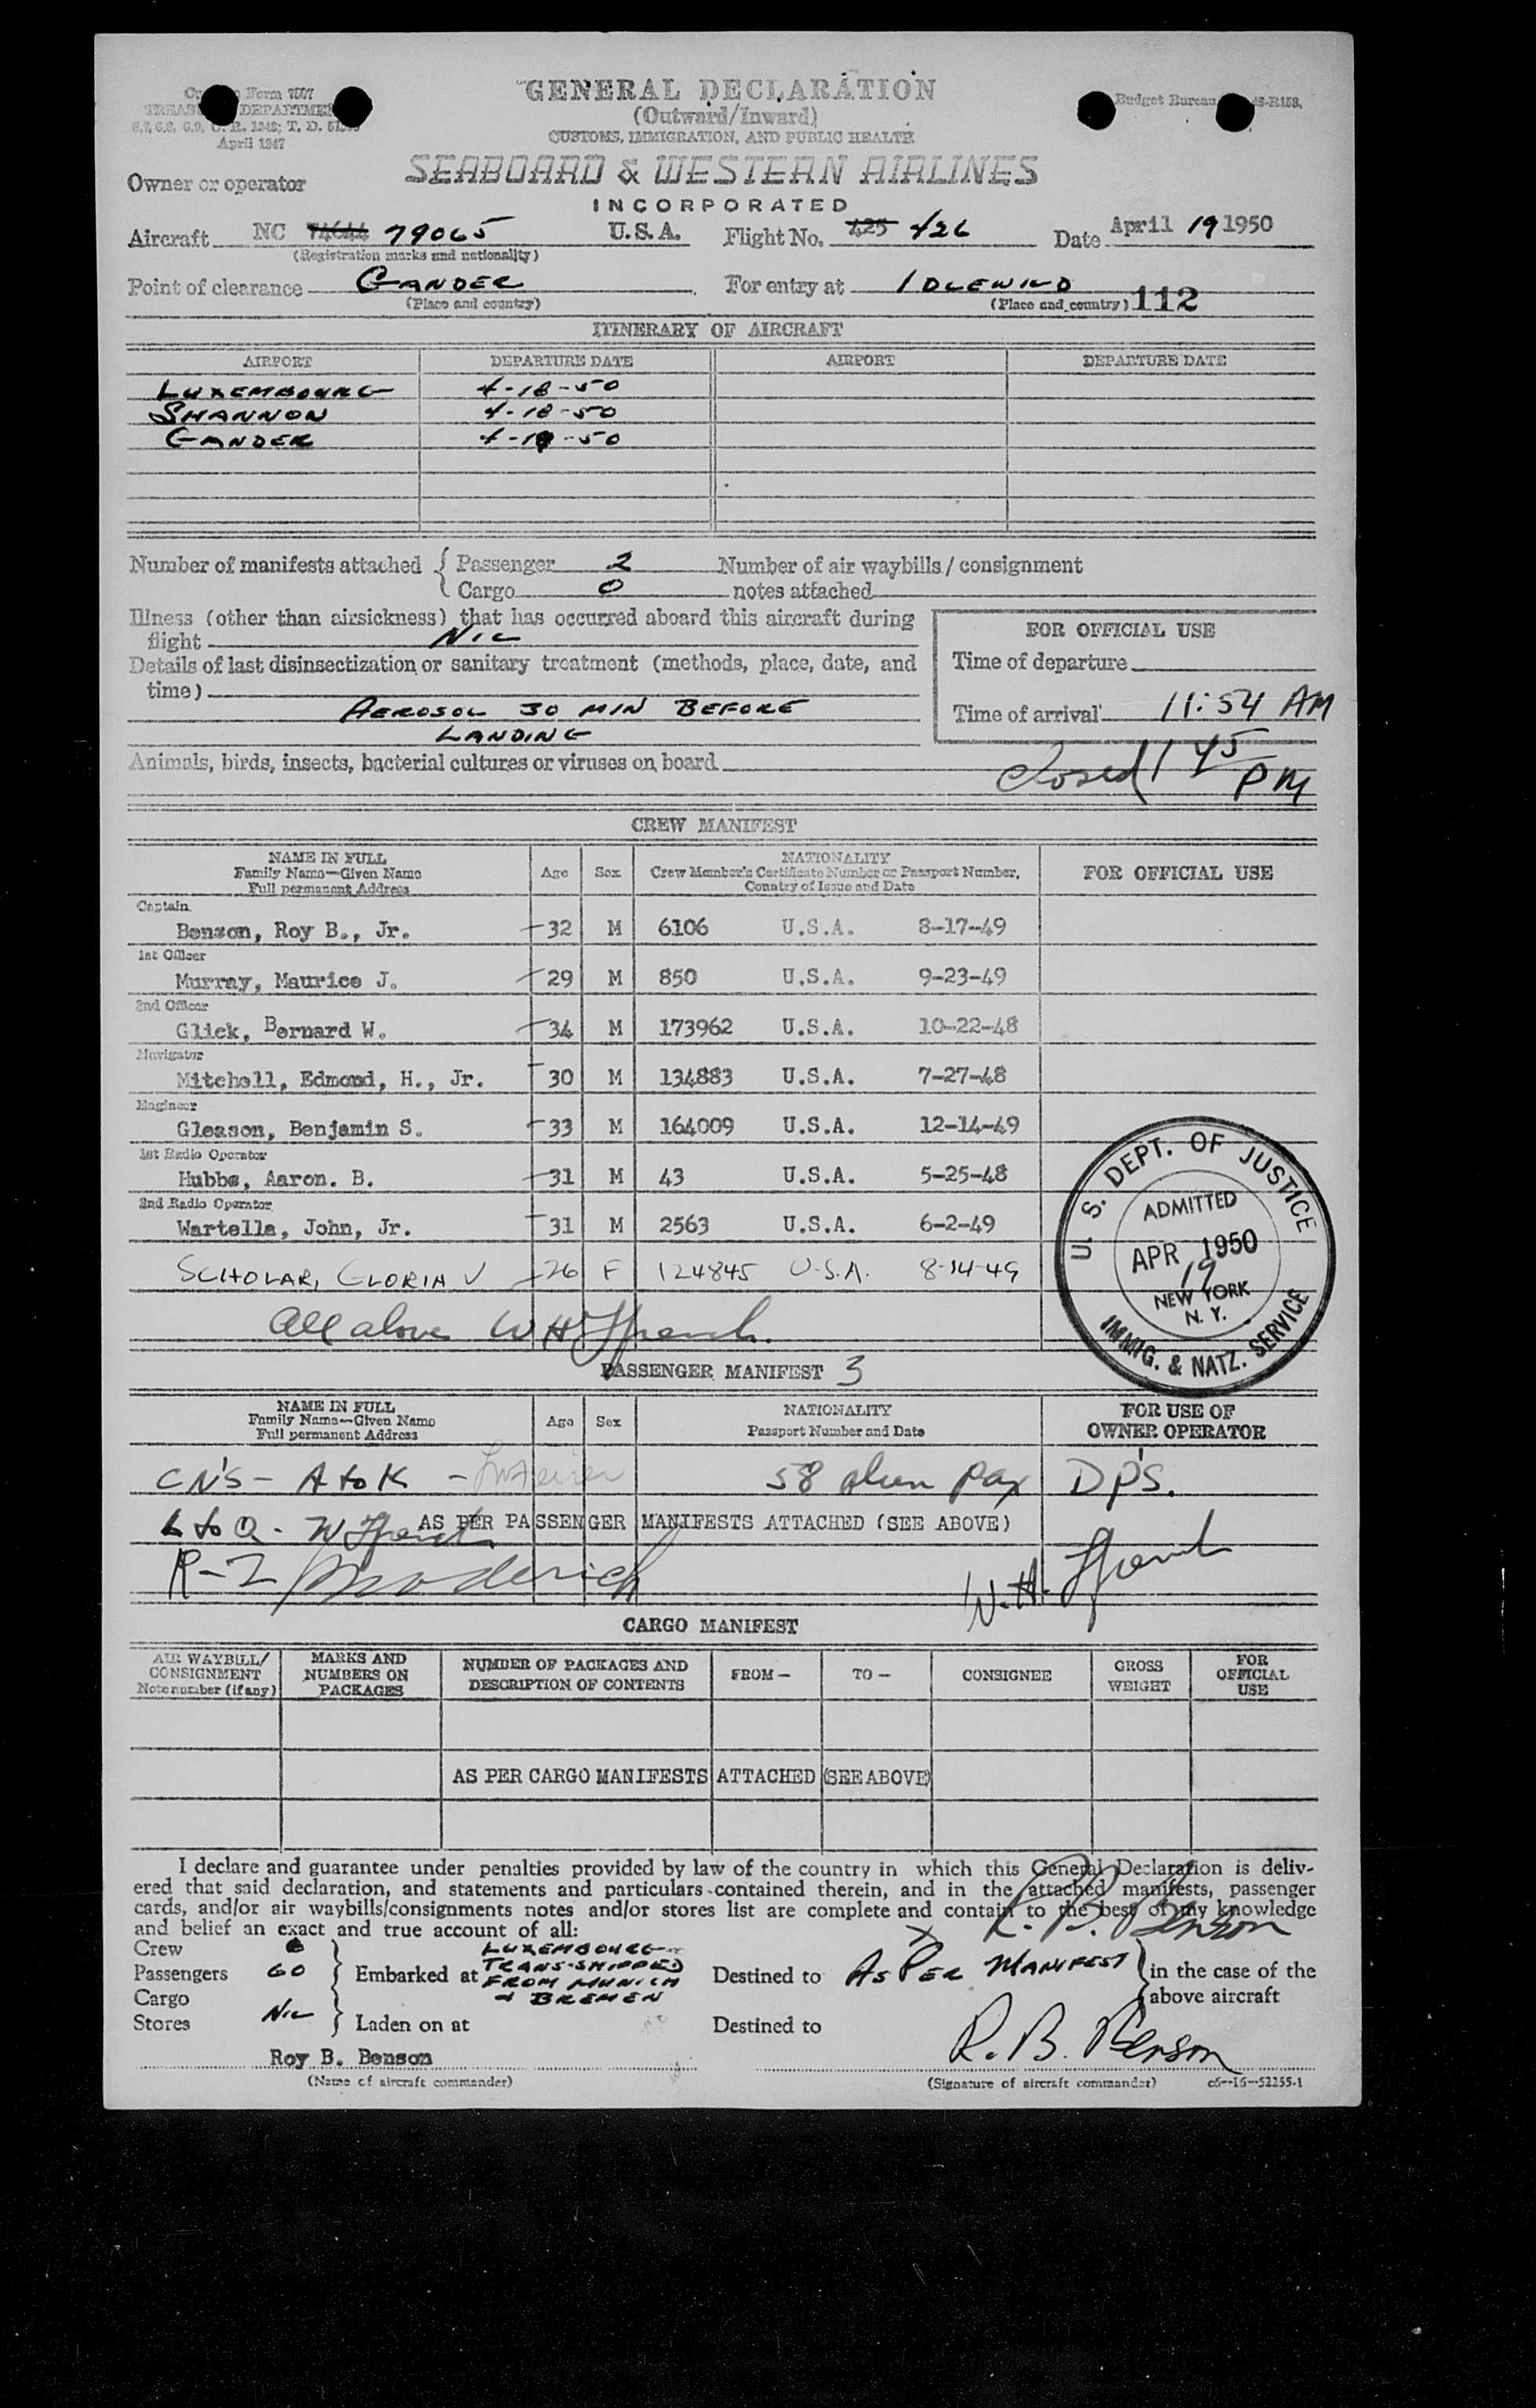 GENERAL DECLARATION
(Outward/Inward)
CUSTOMS, IMMIGRATION, AND PUBLIC HEALTH
Form 7507
DEPARTMENT
April 1947
Budget Bureau
SEABOARD & WESTERN AIRLINES
INCORPORATED
Owner or operator
Aircraft NC 79065 U.S.A. Flight No. 425 426 Date April 19 1950
(Registration marks and nationality)
Point of clearance GANDER For entry at IDLEWILD
(Place and country) (Place and country) 112
ITINERARY OF AIRCRAFT
AIRPORT DEPARTURE DATE AIRPORT DEPARTURE DATE
LUXEMBOURG 4-18-50
SHANNON 4-18-50
GANDER 4-19-50
Number of manifests attached { Passenger 2 Number of air waybills / consignment
Cargo 0 notes attached
Illness (other than airsickness) that has occurred aboard this aircraft during
flight NIL
Details of last disinsectization or sanitary treatment (methods, place, date, and
time)
AEROSOL 30 MIN BEFORE
LANDING
FOR OFFICIAL USE
Time of departure
Time of arrival 11:54 AM
Animals, birds, insects, bacterial cultures or viruses on board
closed 1 45 PM
CREW MANIFEST
NAME IN FULL Age Sex NATIONALITY FOR OFFICIAL USE
Family Name—Given Name Crew Member's Certificate Number or Passport Number,
Full permanent Address Country of Issue and Date
Captain
Benson, Roy B., Jr. 32 M 6106 U.S.A. 8-17-49
1st Officer
Murray, Maurice J. 29 M 850 U.S.A. 9-23-49
2nd Officer
Glick, Bernard W. 34 M 173962 U.S.A. 10-22-48
Navigator
Mitchell, Edmond, H., Jr. 30 M 134883 U.S.A. 7-27-48
Engineer
Gleason, Benjamin S. 33 M 164009 U.S.A. 12-14-49
1st Radio Operator
Hubbs, Aaron. B. 31 M 43 U.S.A. 5-25-48
2nd Radio Operator
Wartella, John, Jr. 31 M 2563 U.S.A. 6-2-49
SCHOLAR, GLORIA V 26 F 124845 U.S.A. 8-14-49
All above W H
U. S. DEPT. OF JUSTICE
ADMITTED
APR 19 1950
NEW YORK
N. Y.
IMMIG. & NATZ. SERVICE
PASSENGER MANIFEST 3
NAME IN FULL Age Sex NATIONALITY FOR USE OF
Family Name—Given Name Passport Number and Date OWNER OPERATOR
Full permanent Address
CN'S - A to K - 58 alien pax DP'S.
L to Q - W AS PER PASSENGER MANIFESTS ATTACHED (SEE ABOVE)
R-Z
W. H.
CARGO MANIFEST
AIR WAYBILL/ MARKS AND NUMBER OF PACKAGES AND FROM — TO — CONSIGNEE GROSS FOR
CONSIGNMENT NUMBERS ON DESCRIPTION OF CONTENTS WEIGHT OFFICIAL
Note number (if any) PACKAGES USE
AS PER CARGO MANIFESTS ATTACHED (SEE ABOVE)
I declare and guarantee under penalties provided by law of the country in which this General Declaration is deliv-
ered that said declaration, and statements and particulars contained therein, and in the attached manifests, passenger
cards, and/or air waybills/consignments notes and/or stores list are complete and contain to the best of my knowledge
and belief an exact and true account of all:
R. B. Benson
Crew
Passengers 60 Embarked at LUXEMBOURG
TRANS-SHIPPED
FROM MUNICH
& BREMEN
Destined to AS PER MANIFEST in the case of the
above aircraft
Cargo
Stores NIL Laden on at Destined to
Roy B. Benson R. B. Benson
(Name of aircraft commander) (Signature of aircraft commander) c6—16—52255-1